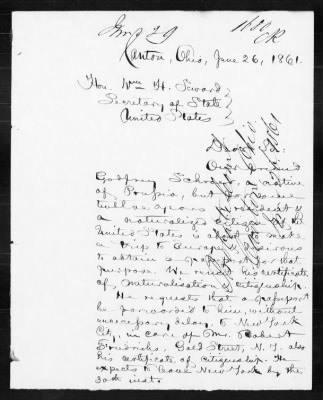 Canton, Ohio, June 26, 1861.
Hon. Wm H. Seward
Secretary of State
United States
Dear Sir:
Our friend
Godfrey, a native
of Prussia, but for some
twelve years a resident &
a naturalized citizen of the
United States is about to make
a trip to Europe & is desirous
to obtain a passport for that
purpose. We his certificate
of naturalisation & citizenship.
He requests that a passport
be forwarded to him, without
unnecessary delay, to New York
City, in care of Mr. Robert
Friedrichs, Gold Street, N. Y. also
his certificate of citizenship. He
expects to leave New York by the
30th inst.